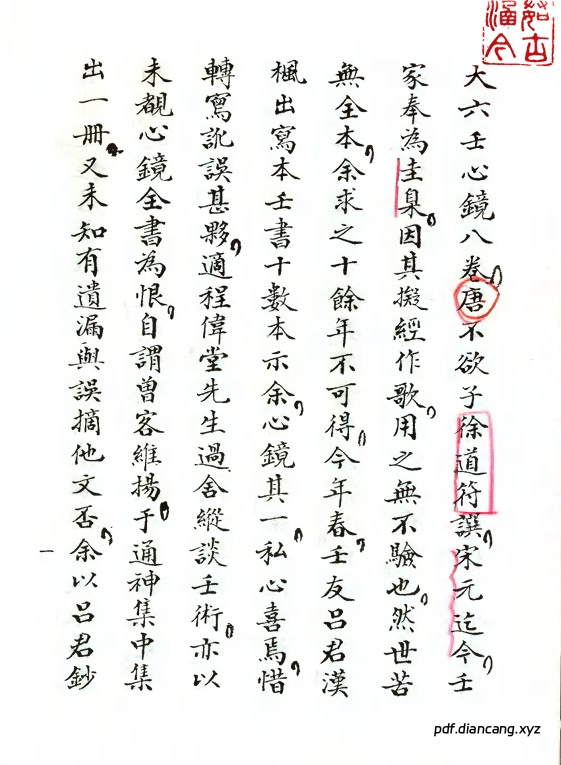 大六壬心鏡八卷唐不欲子徐道符譔宋元迄今壬
家奉為圭臬因其擬經作歌用之無不驗也然世苦
無全本余求之十餘年不可得今年春壬友呂君漢
楓出寫本壬書十數本示余心鏡其一私心喜焉惜
轉寫訛誤甚夥適程偉堂先生過舍縱談壬術亦以
未覩心鏡全書為恨自謂曽客維揚于通神集中集
出一冊又未知有遺漏與誤摘他文否余以呂君鈔
一
pdf.diancang.xyz